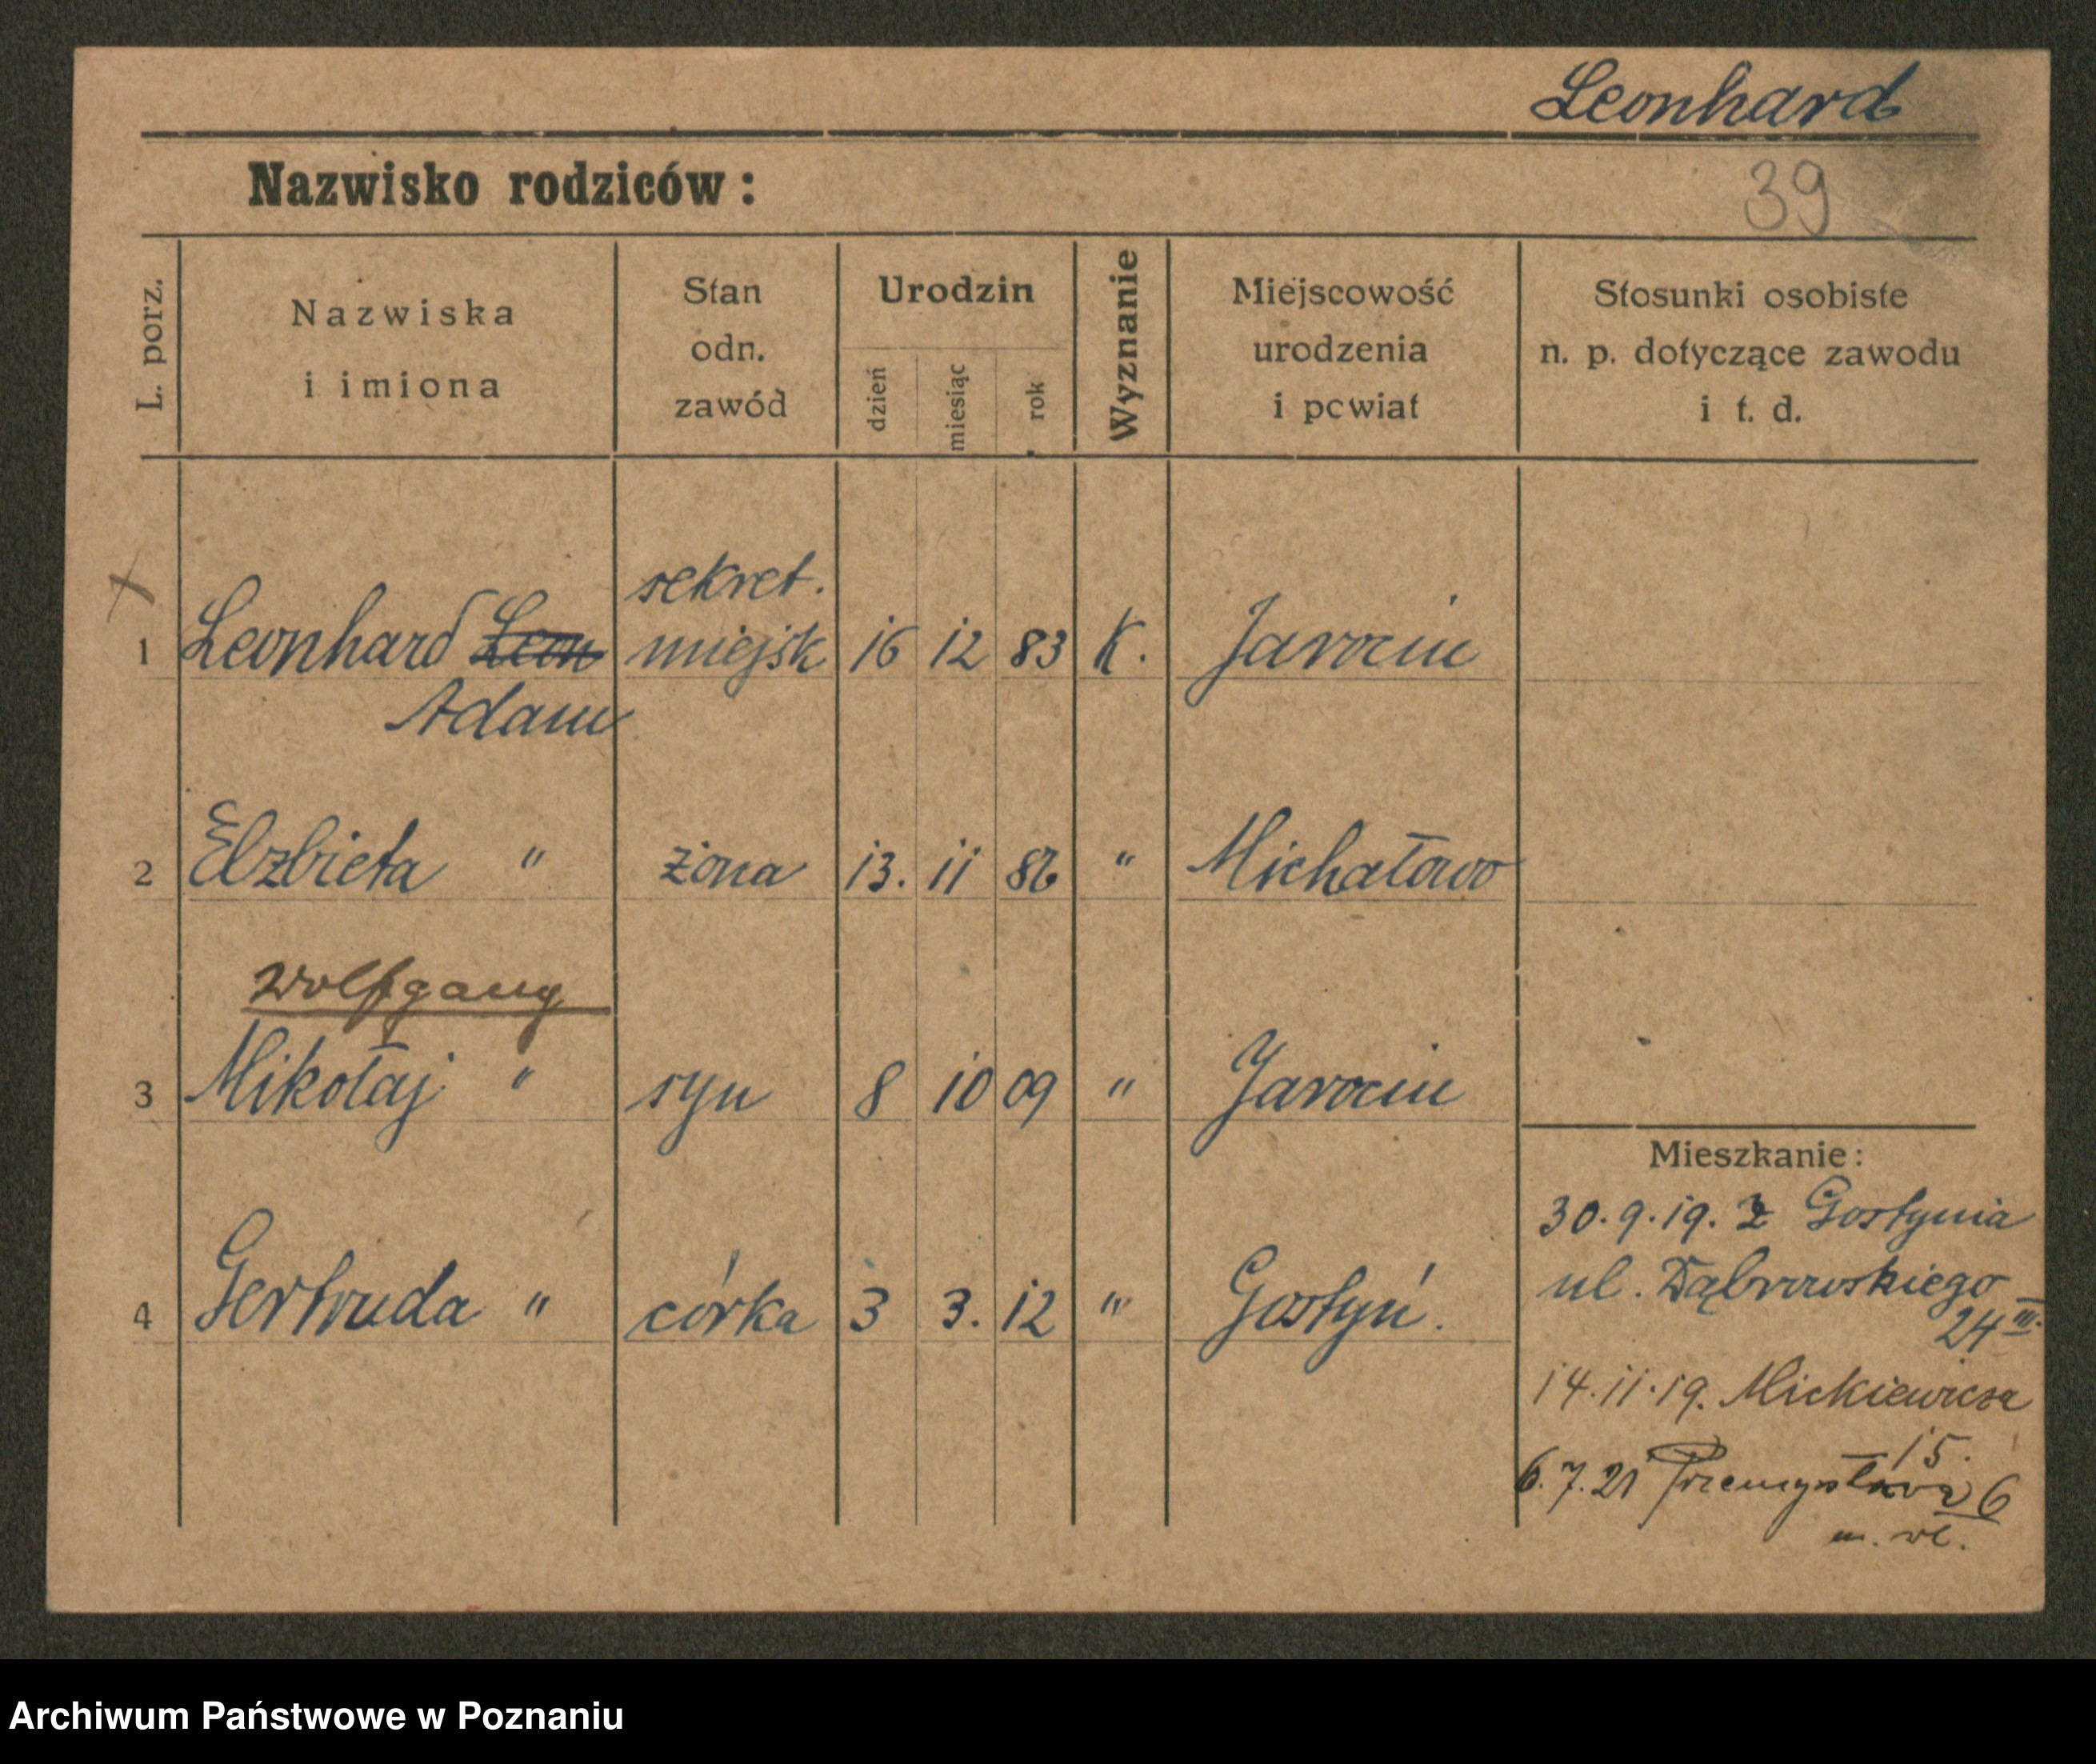 Leonhard
Nazwisko rodziców:
39
L. porz.
Nazwiska
i imiona
Stan
odn.
zawód
Urodzin
dzień
miesiąc
rok
Wyznanie
Miejscowość
urodzenia
i powiat
Stosunki osobiste
n. p. dotyczące zawodu
i t. d.
sekret.
1 Leonhard Leon miejsk 16 12 83 K. Jarocin
Adam
2 Elzbieta " żona 13. 11 86 " Michałowo
Wolfgang
3 Mikołaj " syn 8 10 09 " Jarocin
4 Gertruda " córka 3 3. 12 " Gostyń.
Mieszkanie:
30.9.19. z Gostynia
ul. Dąbrowskiego
24 III.
14.11.19. Mickiewicza
15.
6.7.21 Przemysława 6
m. wł.
Archiwum Państwowe w Poznaniu